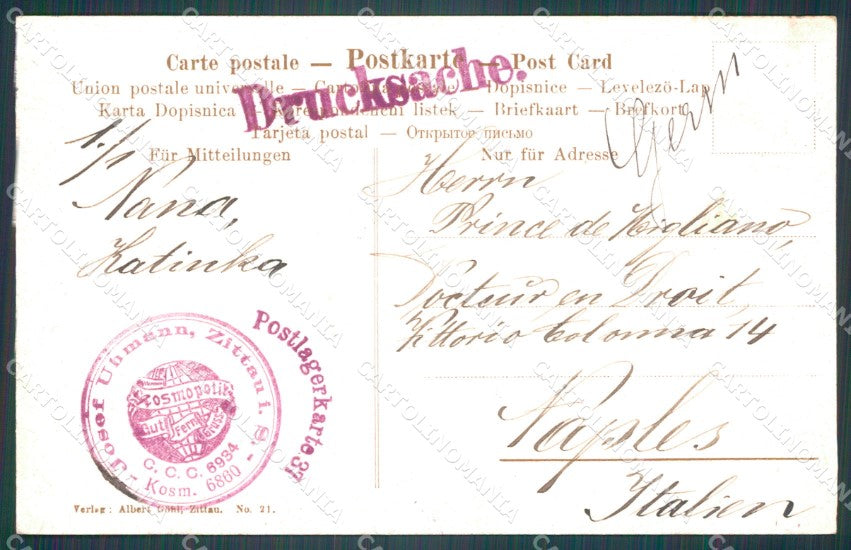 Carte postale — Postkarte — Post Card
Drucksache.
Union postale universelle — Dopisnice — Levelező-Lap
Karta Dopisnica — listek — Briefkaart — Brefkort
Tarjeta postal — Открытое письмо
Für Mitteilungen
Nur für Adresse
1./1
Nana,
Katinka
Herrn
Prince de Migliano,
Docteur en Droit,
Vittorio Colonna 14
Naples
Italien
Postlagerkarte 37
Josef Ubmann, Zittau i. S.
Kosmopolit
Gut Fern Gruss
C. C. C. 6934
Kosm. 6860
Verlag: Albert Zittau. No. 21.
CARTOLINOMANIA